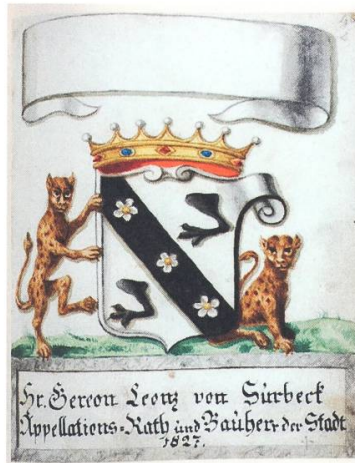 Hr. Gereon Leonz von Sürbeck
Appellations-Rath und Bauherr der Stadt
1827.